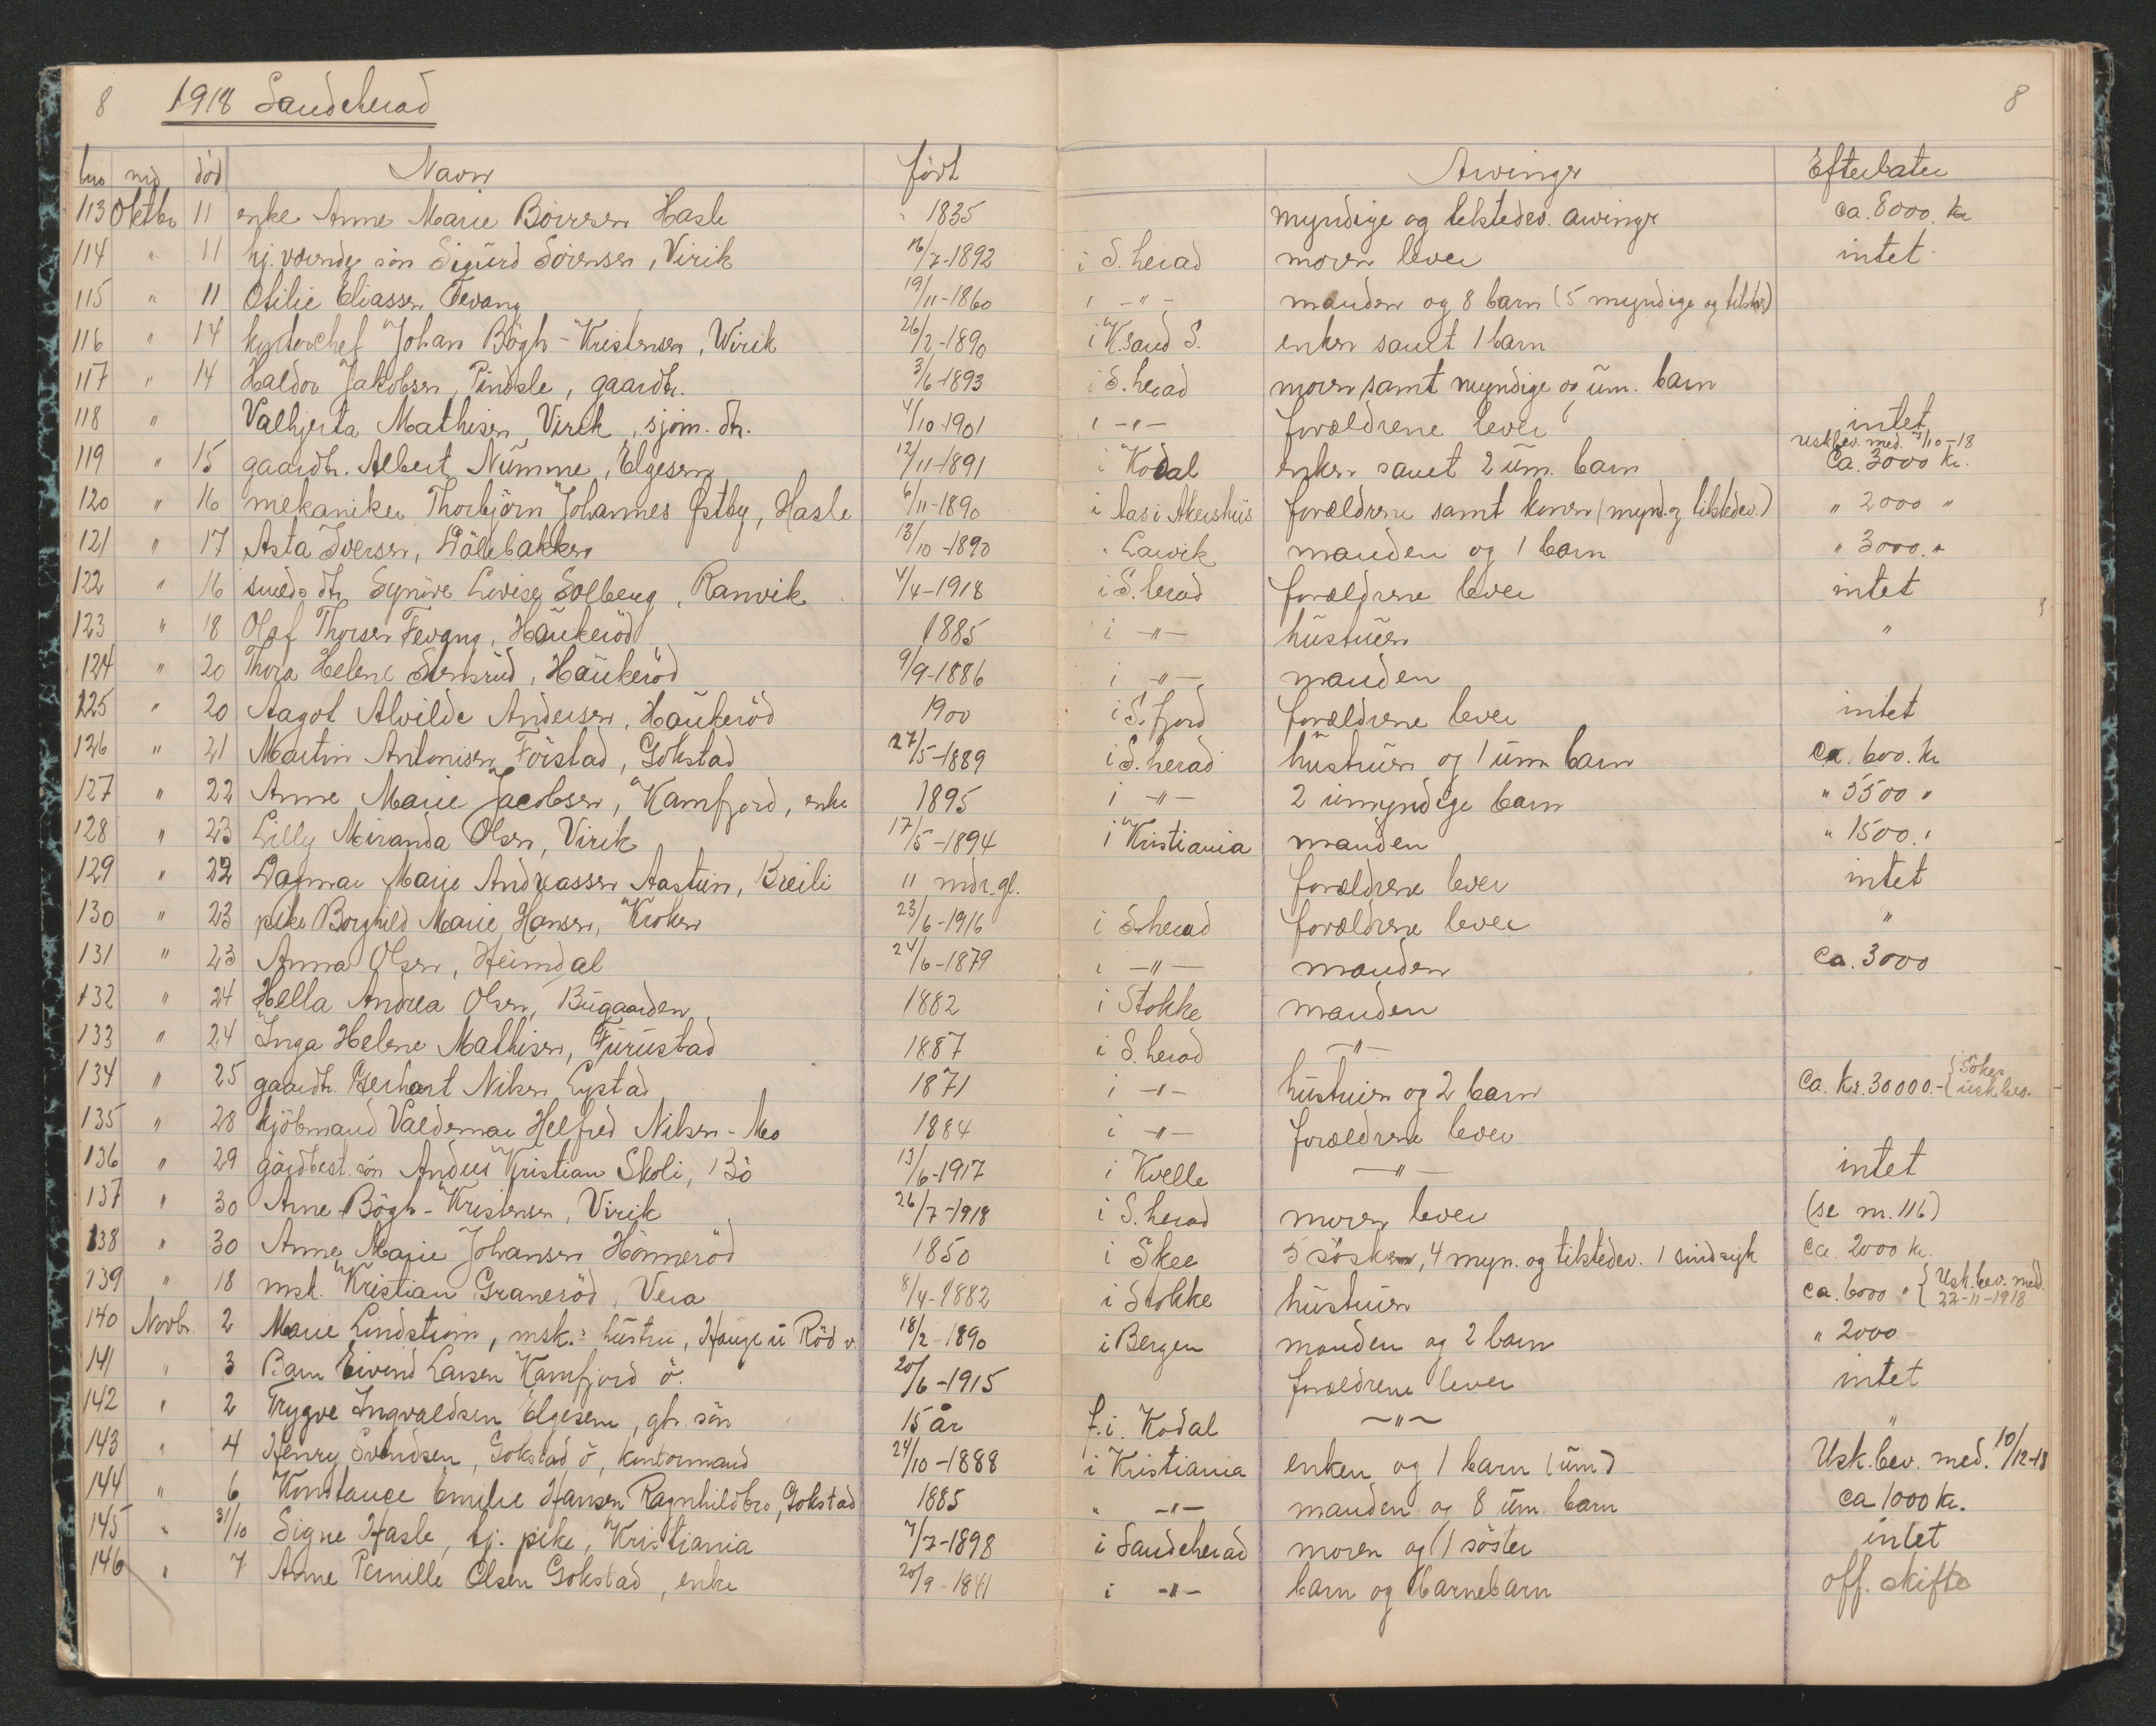 8 1918 Sandeherad 8
lno md död Navn födt Arvinger Efterlater
113 Oktbr 11 enke Anne Marie Börresen Hasle " 1835 myndige og tilstedev. arvinger ca. 8000. kr
114 " 11 hj. værende sön Sigurd Sörensen, Virik 16/7-1892 i S. herad moren lever intet
115 " 11 Otilie Eliassen Fevang 19/11-1860 i -"- manden og 8 barn (5 myndige og tilstev.)
116 " 14 kontorchef Johan Bögh-Kristensen, Wirik 26/2-1890 i K.sand S. enken samt 1 barn
117 " 14 Haldor Jakobsen, Pindsle, gaardbr. 3/6-1893 i S. herad moren samt myndige og um. barn
118 " Valhjerta Mathisen Virik, sjöm. dtr. 4/10-1901 i -"- forældrene lever intet
119 " 15 gaardbr. Albert Numme, Elgesem 12/11-1891 i Kodal enken samt 2 um. barn uskbev. med. 7/10-18 Ca. 3000 kr.
120 " 16 mekaniker Thorbjörn Johannes Östby, Hasle 6/11-1890 i Aas i Akershus forældrene samt konen (mynd. og tilstedev.) " 2000 "
121 " 17 Asta Iversen, Dölebakken 13/10-1890 " Larvik manden og 1 barn " 3000. "
122 " 16 smeds dtr. Synöve Lovise Solberg, Ranvik 4/4-1918 i S. herad forældrene lever intet
123 " 18 Olaf Thorsen Fevang, Haukeröd 1885 i -"- hustruen "
124 " 20 Thora Helene Stensrud, Haukeröd 9/9-1886 i -"- manden
125 " 20 Aagot Alvilde Andersen, Haukeröd 1900 i S. fjord forældrene lever intet
126 " 21 Martin Antonisen Förstad, Gokstad 27/5-1889 i S. herad hustruen og 1 um. barn ca. 600. kr
127 " 22 Anne Marie Jacobsen, Kamfjord, enke 1895 i -"- 2 umyndige barn " 5500 "
128 " 23 Lilly Miranda Olsen, Virik 17/5-1894 i Kristiania manden " 1500. "
129 " 22 Dagmar Marie Andreassen Aastuen, Breili 11 mdr. gl. forældrene lever intet
130 " 23 pike Borghild Marie Hansen, Kroken 23/6-1916 i S. herad forældrene lever "
131 " 23 Anna Olsen, Heimdal 24/6-1879 i -"- manden ca. 3000
132 " 24 Hella Andrea Olsen, Bugaarden 1882 i Stokke manden
133 " 24 Inga Helene Mathisen, Furustad 1887 i S. herad -"-
134 " 25 gaardbr. Gerhart Nilsen Lystad 1871 i -"- hustruen og 2 barn Ca. Kr. 30000.- { Söker uskbev.
135 " 28 kjöbmand Valdemar Helfred Nilsen-Mo 1884 i -"- forældrene lever
136 " 29 gårdbest. sön Anders Kristian Skoli, Bö 13/6-1917 i Kvelle -"- intet
137 " 30 Arne Bögh-Kristensen, Virik 26/7-1918 i S. herad moren lever (se nr. 116)
138 " 30 Anne Marie Johansen Hönneröd 1850 i Skee 5 söskn, 4 myn. og tilstedev. 1 sindsyk ca. 2000 kr.
139 " 18 msk. Kristian Graneröd, Vera 8/4-1882 i Stokke hustruen ca. 6000 " { Usk. bev. med. 22-11-1918
140 Novbr. 2 Marie Lindström, msk.s hustru, Hauge u Röd v. 18/2-1890 i Bergen manden og 2 barn " 2000
141 " 3 Barn Eivind Larsen Kamfjord ö. 20/6-1915 forældrene lever intet
142 " 2 Trygve Ingvaldsen Elgesem, gbr. sön 15 år f. i. Kodal -"- "
143 " 4 Henry Svendsen, Gokstad ö, kontormand 24/10-1888 i Kristiania enken og 1 barn (um) Usk. bev. med. 10/12-18
144 " 6 Konstance Emilie Hansen Ragnhildbro, Gokstad 1885 " -"- manden og 8 um. barn ca 1000 kr.
145 " 31/10 Signe Hasle, tj. pike, Kristiania 7/7-1898 i Sandeherad moren og 1 söster intet
146 " 7 Anne Pernille Olsen Gokstad, enke 20/9-1841 i -"- barn og barnebarn off. skifte